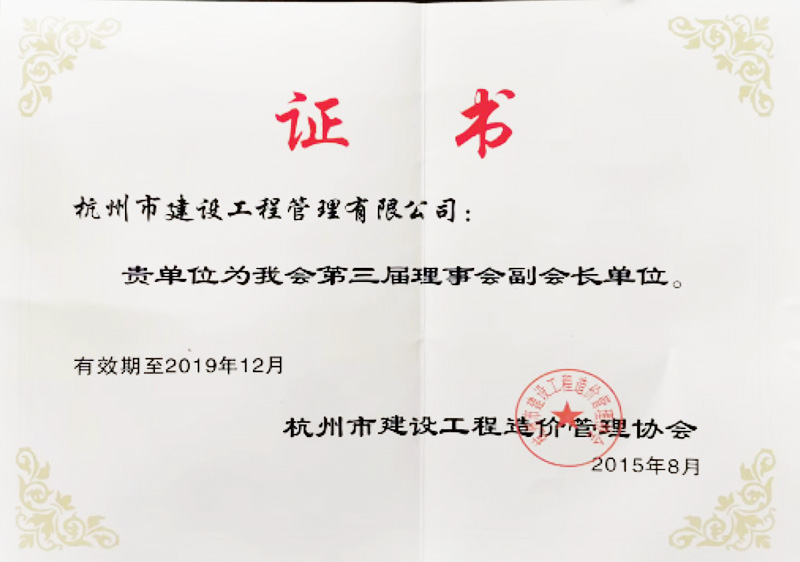 证 书
杭州市建设工程管理有限公司：
贵单位为我会第三届理事会副会长单位。
有效期至2019年12月
杭州市建设工程造价管理协会
杭州市建设工程造价管理协会
2015年8月